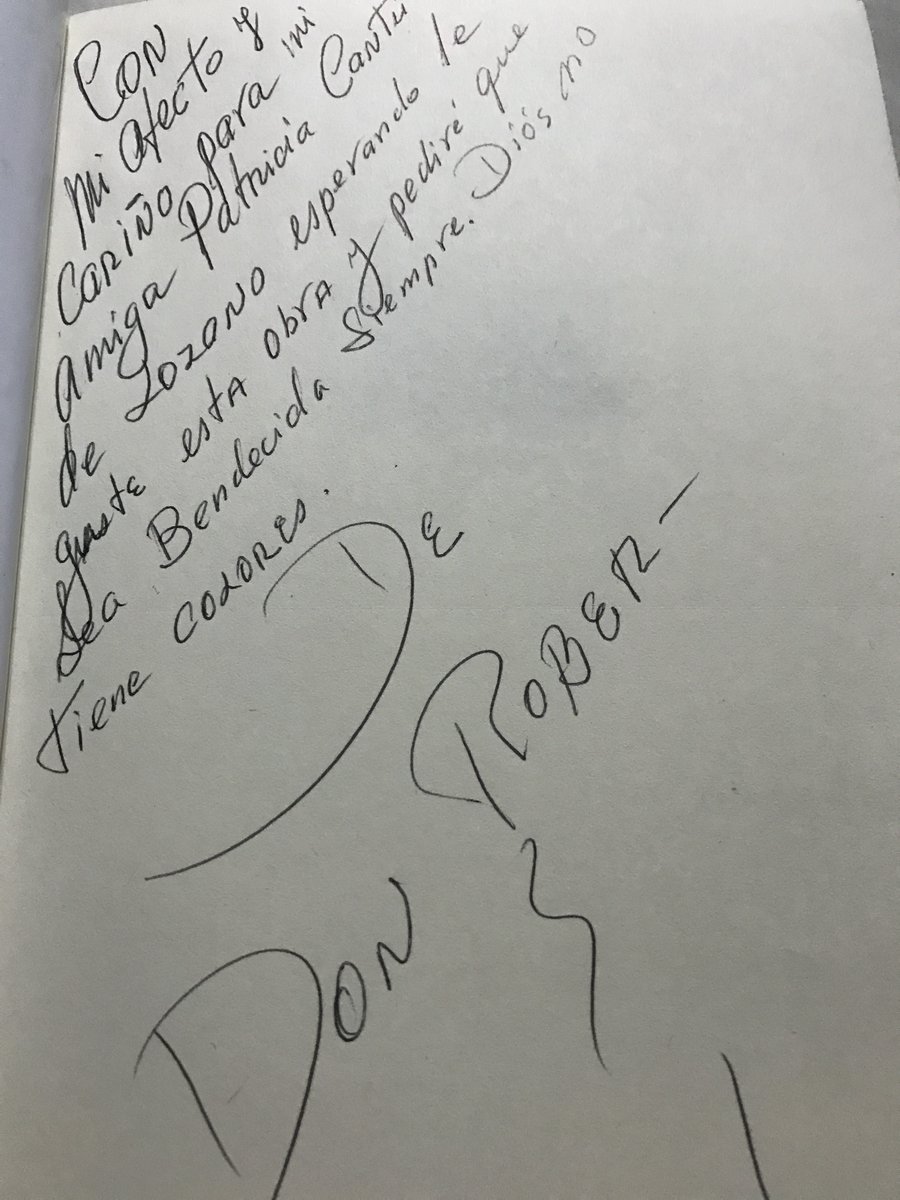 CON
Mi Afecto y
CARIÑO para mi
Amiga Patricia Cantu
de Lozano esperando le
guste estA obrA y pediré que
Sea Bendecida Siempre. Diós no
tiene COLORES.
DE
ROBER-
DON